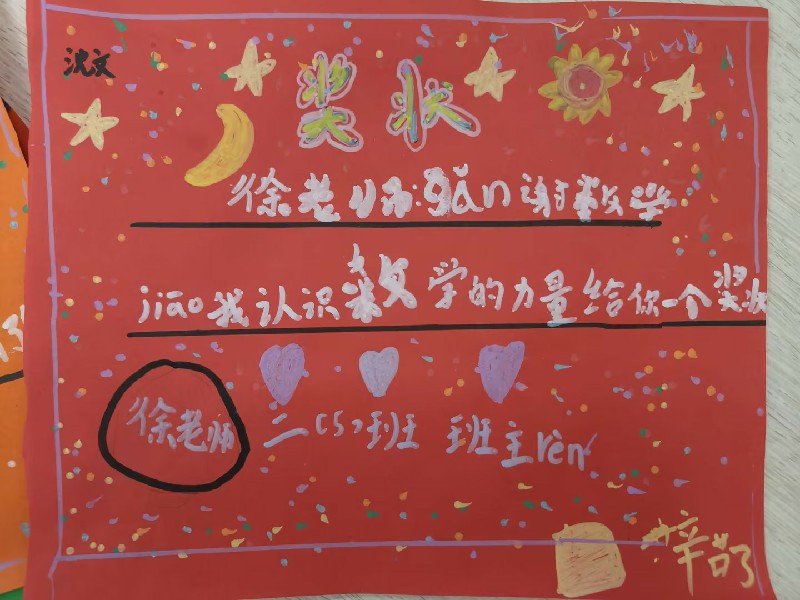 沈文
奖状
徐老师:gǎn谢数学
jiāo我认识数学的力量给你一个奖状
徐老师
二(5)班 班主rèn
辛苦了